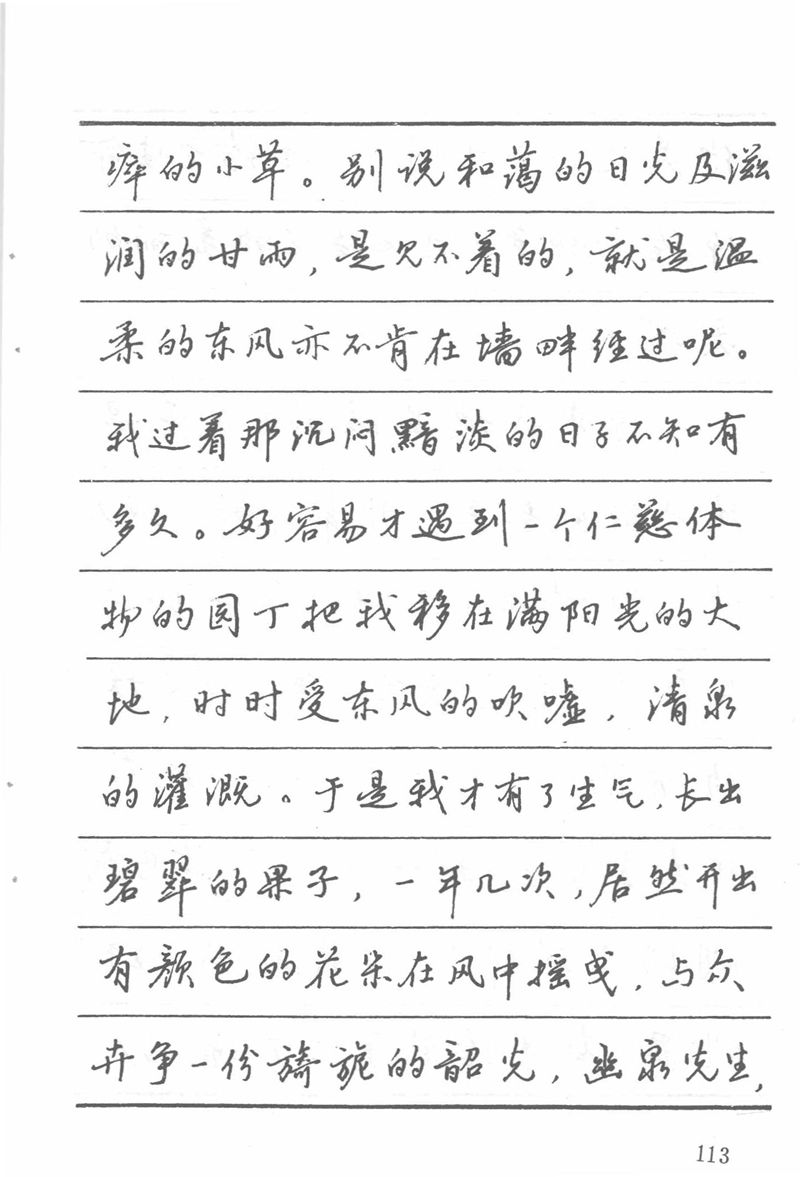 瘁的小草。别说和蔼的日光及滋
润的甘雨,是见不着的,就是温
柔的东风亦不肯在墙畔经过呢。
我过着那沉闷黯淡的日子不知有
多久。好容易才遇到一个仁慈体
物的园丁把我移在满阳光的大
地,时时受东风的吹嘘,清泉
的灌溉。于是我才有了生气,长出
碧翠的果子,一年几次,居然开出
有颜色的花朵在风中摇曳,与众
卉争一份旖旎的韶光,幽泉先生,
113